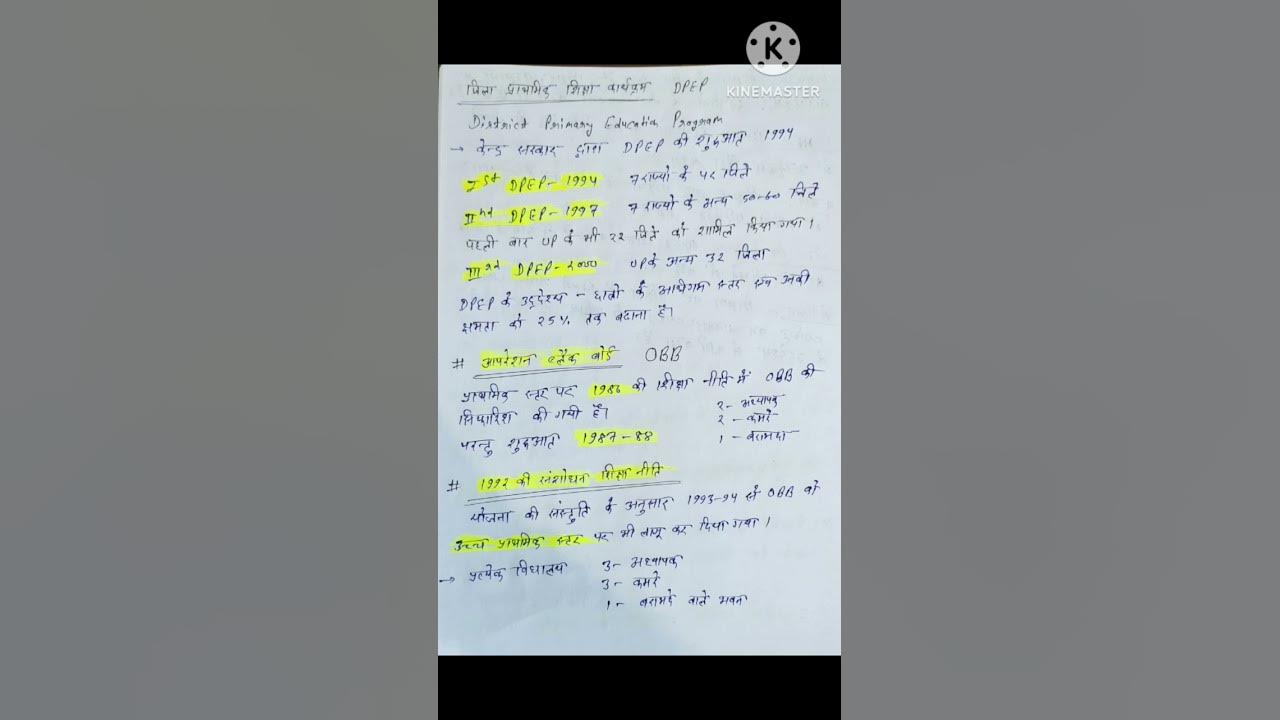 K
KINEMASTER
जिला प्राथमिक शिक्षा कार्यक्रम DPEP
District Primary Education Program
→ केन्द्र सरकार द्वारा DPEP की शुरुआत 1994
Ist DPEP- 1994 7 राज्यों के 42 जिले
IInd DPEP- 1997 7 राज्यों के अन्य 50-60 जिले
पहली बार UP के भी 22 जिले को शामिल किया गया।
IIIrd DPEP- 2000 UP के अन्य 32 जिला
DPEP के उद्देश्य - छात्रों के अधिगम स्तर एवं उनकी
क्षमता को 25% तक बढाना है।
# आपरेशन ब्लैक बोर्ड OBB
प्राथमिक स्तर पर 1986 की शिक्षा नीति में OBB की
सिफारिश की गयी है।
2- अध्यापक
2- कमरे
परन्तु शुरुआत 1987-88
1- बरामदा
# 1992 की संशोधन शिक्षा नीति
योजना की संस्तुति के अनुसार 1993-94 से OBB को
उच्च प्राथमिक स्तर पर भी लागू कर दिया गया।
→ प्रत्येक विधालय 3- अध्यापक
3- कमरे
1- बरामदे वाले भवन